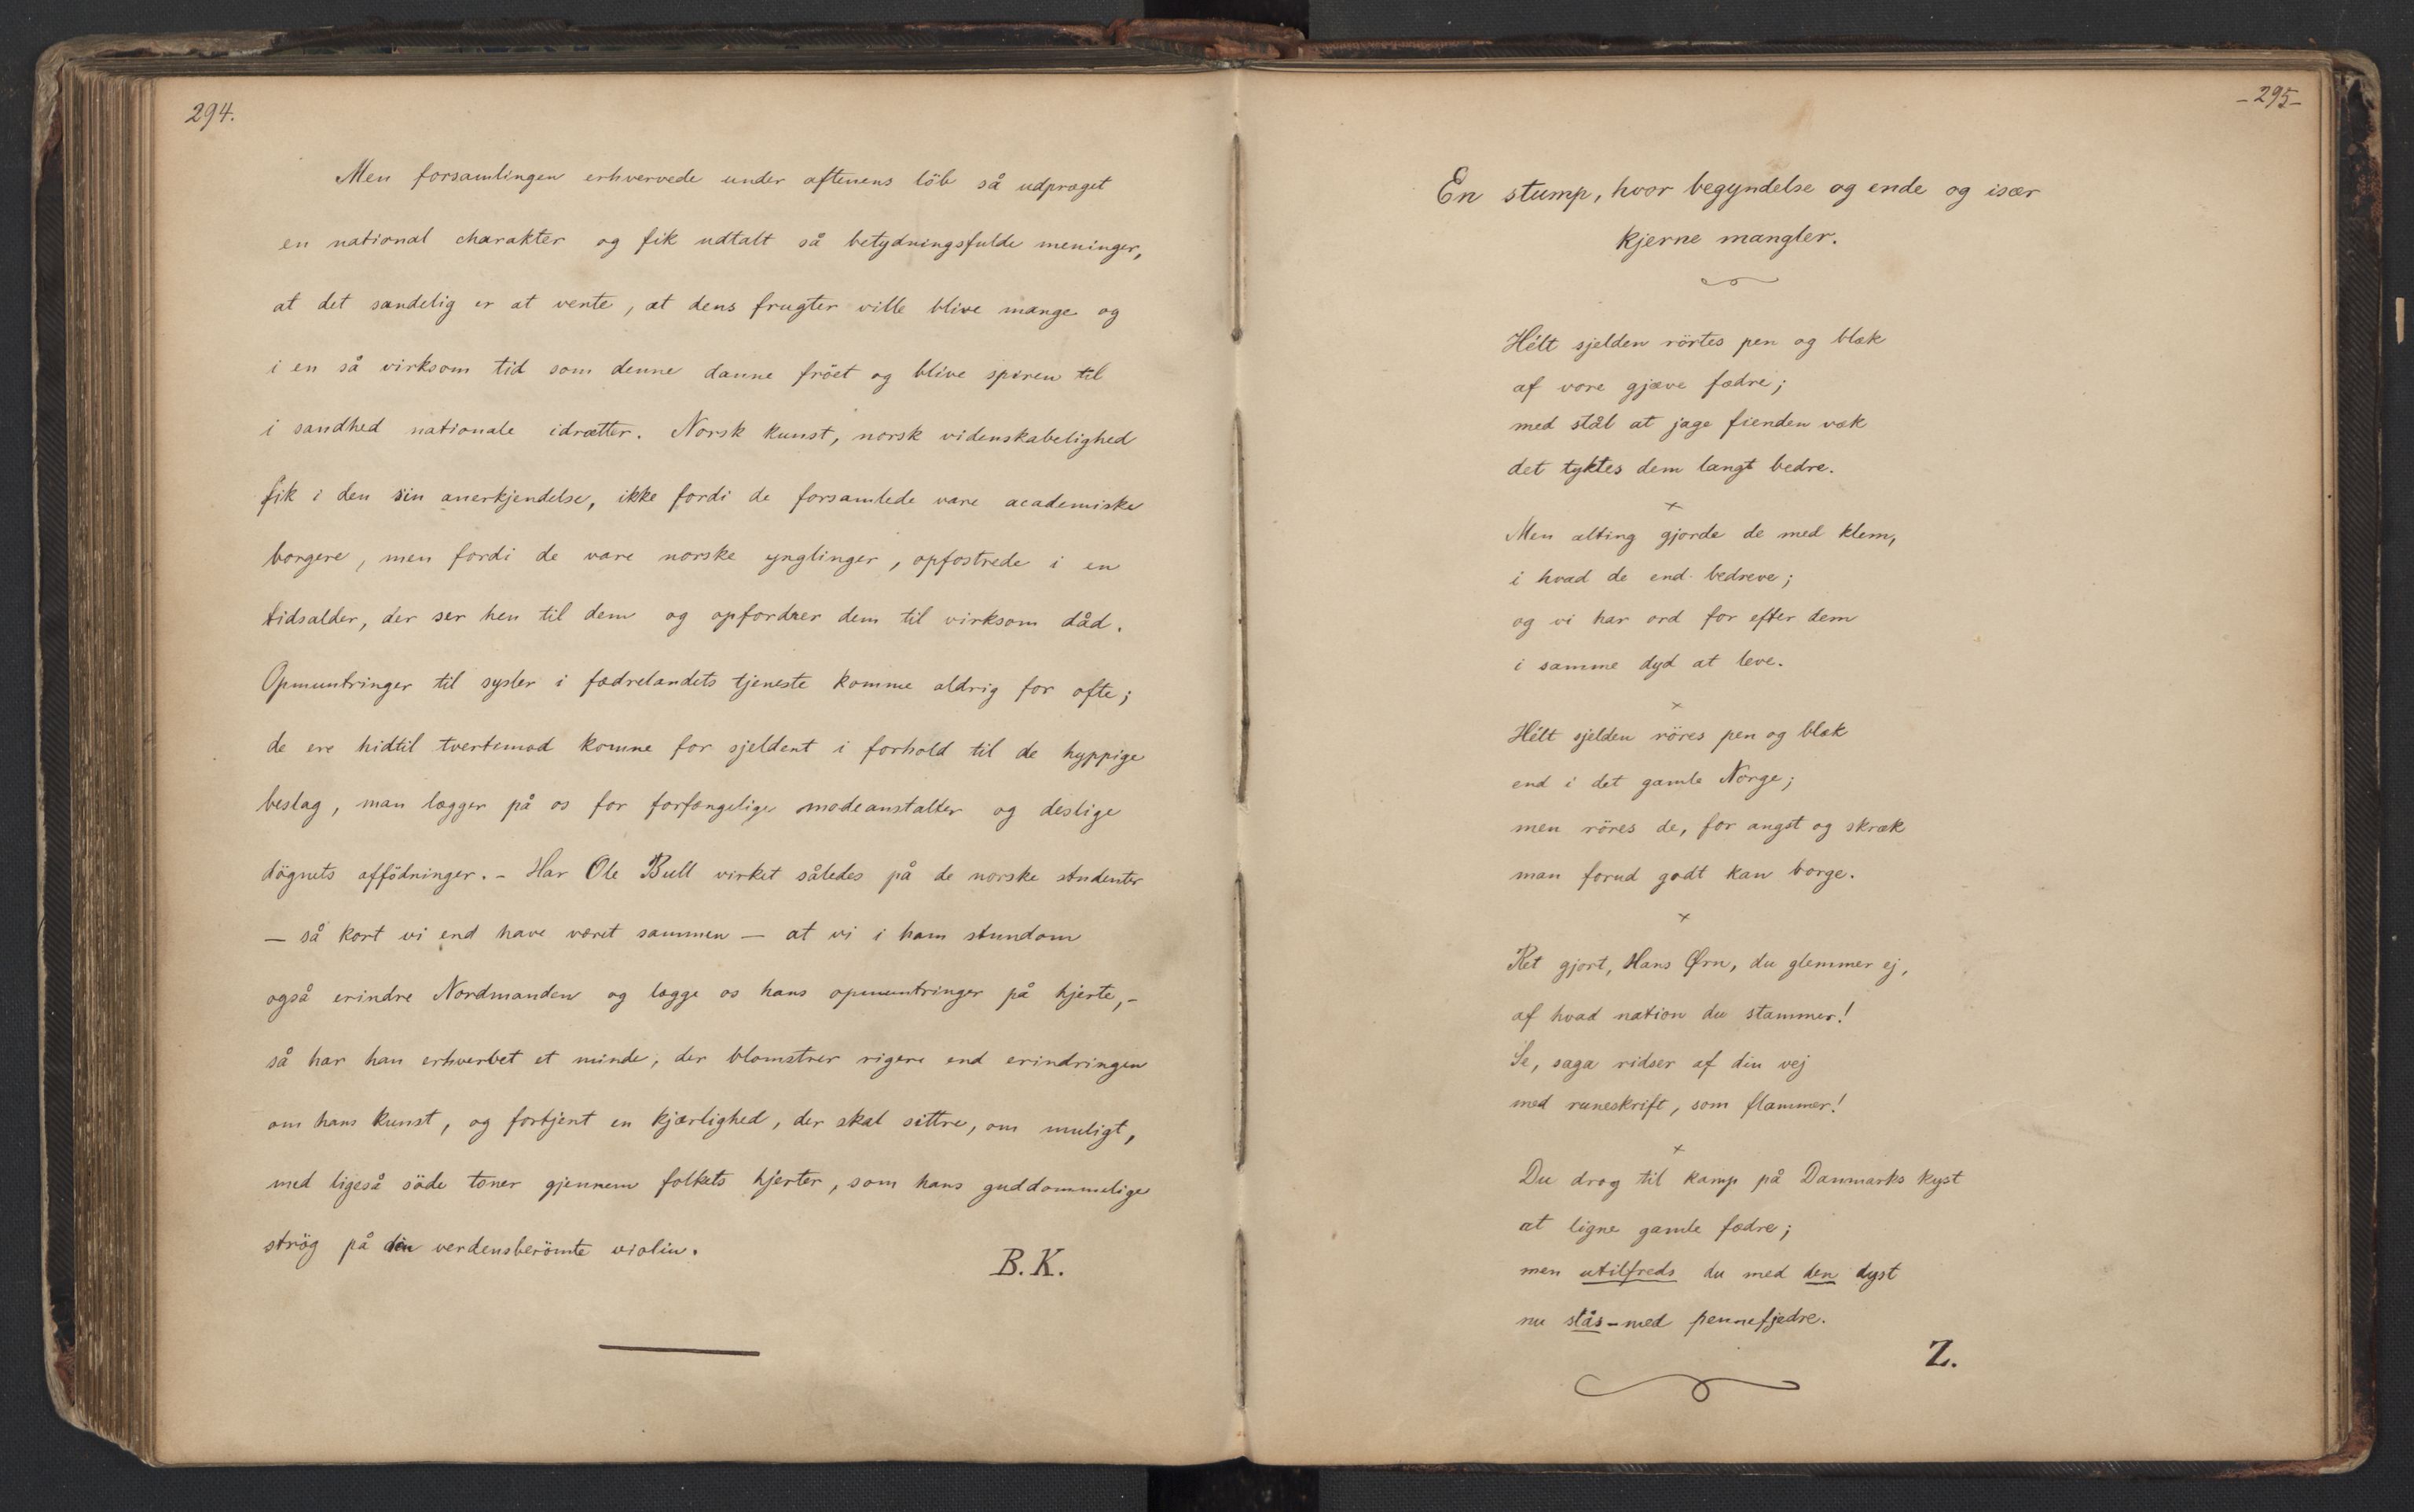 294.
Men forsamlingen erhvervede under aftenens löb så udpræget
en national charakter og fik udtalt så betydningsfulde meninger,
at det sandelig er at vente, at dens frugter ville blive mange og
i en så virksom tid som denne danne fröet og blive spiren til
i sandhed nationale idrætter. Norsk kunst, norsk videnskabelighed
fik i den sin anerkjendelse, ikke fordi de forsamlede vare academiske
borgere, men fordi de vare norske ynglinger, opfostrede i en
tidsalder, der ser hen til dem og opfordrer dem til virksom dåd.
Opmuntringer til sysler i fædrelandets tjeneste komme aldrig for ofte;
de ere hidtil tvertemod komne for sjeldent i forhold til de hyppige
beslag, man lægger på os for forfængelige modeanstalter og deslige
dögnets affödninger. - Har Ole Bull virket således på de norske studenter
— så kort vi end have været sammen — at vi i ham stundom
også erindre Nordmanden og lægge os hans opmuntringer på hjerte, -
så har han erhverbet et minde, der blomstrer rigere end erindringen
om hans kunst, og fortjent en kjærlighed, der skal sittre, om muligt,
med ligeså söde toner gjennem folkets hjerter, som hans guddommelige
strög på din verdensberömte violin.
B. K.
- 295 -
En stump, hvor begyndelse og ende og især
kjerne mangler.
Hélt sjelden rörtes pen og blæk
af vore gjæve fædre;
med stål at jage fienden væk
det tyktes dem langt bedre.
x
Men alting gjorde de med klem,
i hvad de end bedreve;
og vi har ord for efter dem
i samme dyd at leve.
x
Hélt sjelden röres pen og blæk
end i det gamle Norge;
men röres de, for angst og skræk
man forud godt kan borge.
x
Ret gjort, Hans Ørn, du glemmer ej,
af hvad nation du stammer!
Se, saga ridser af din vej
med runeskrift, som flammer!
x
Du drog til kamp på Danmarks kyst
at ligne gamle fædre;
men utilfreds du med den dyst
nu slås - med pennefjedre.
Z.